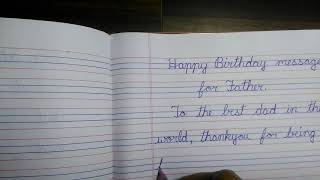 Happy Birthday message
for Father.
To the best dad in the
world, thankyou for being